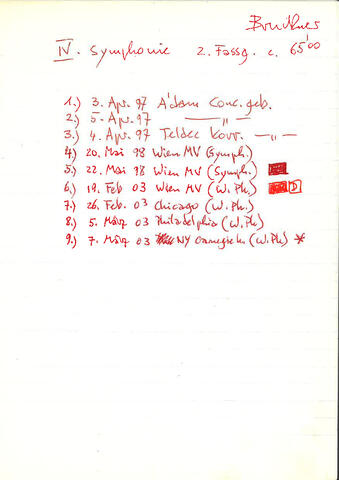 Bruckner
IV. Symphonie 2. Fassg. c. 65'00
1.) 3. Apr. 97 A'dam Conc. geb.
2.) 5. Apr. 97 —„—
3.) 4. Apr. 97 Teldec Konz. —„—
4.) 20. Mai 98 Wien MV (Symph.)
5.) 22. Mai 98 Wien MV (Symph.)
6.) 19. Feb 03 Wien MV (W. Ph.) D
7.) 26. Feb. 03 Chicago (W. Ph.)
8.) 5. März 03 Philadelphia (W. Ph.)
9.) 7. März 03 NY Carnegie H. (W. Ph) *